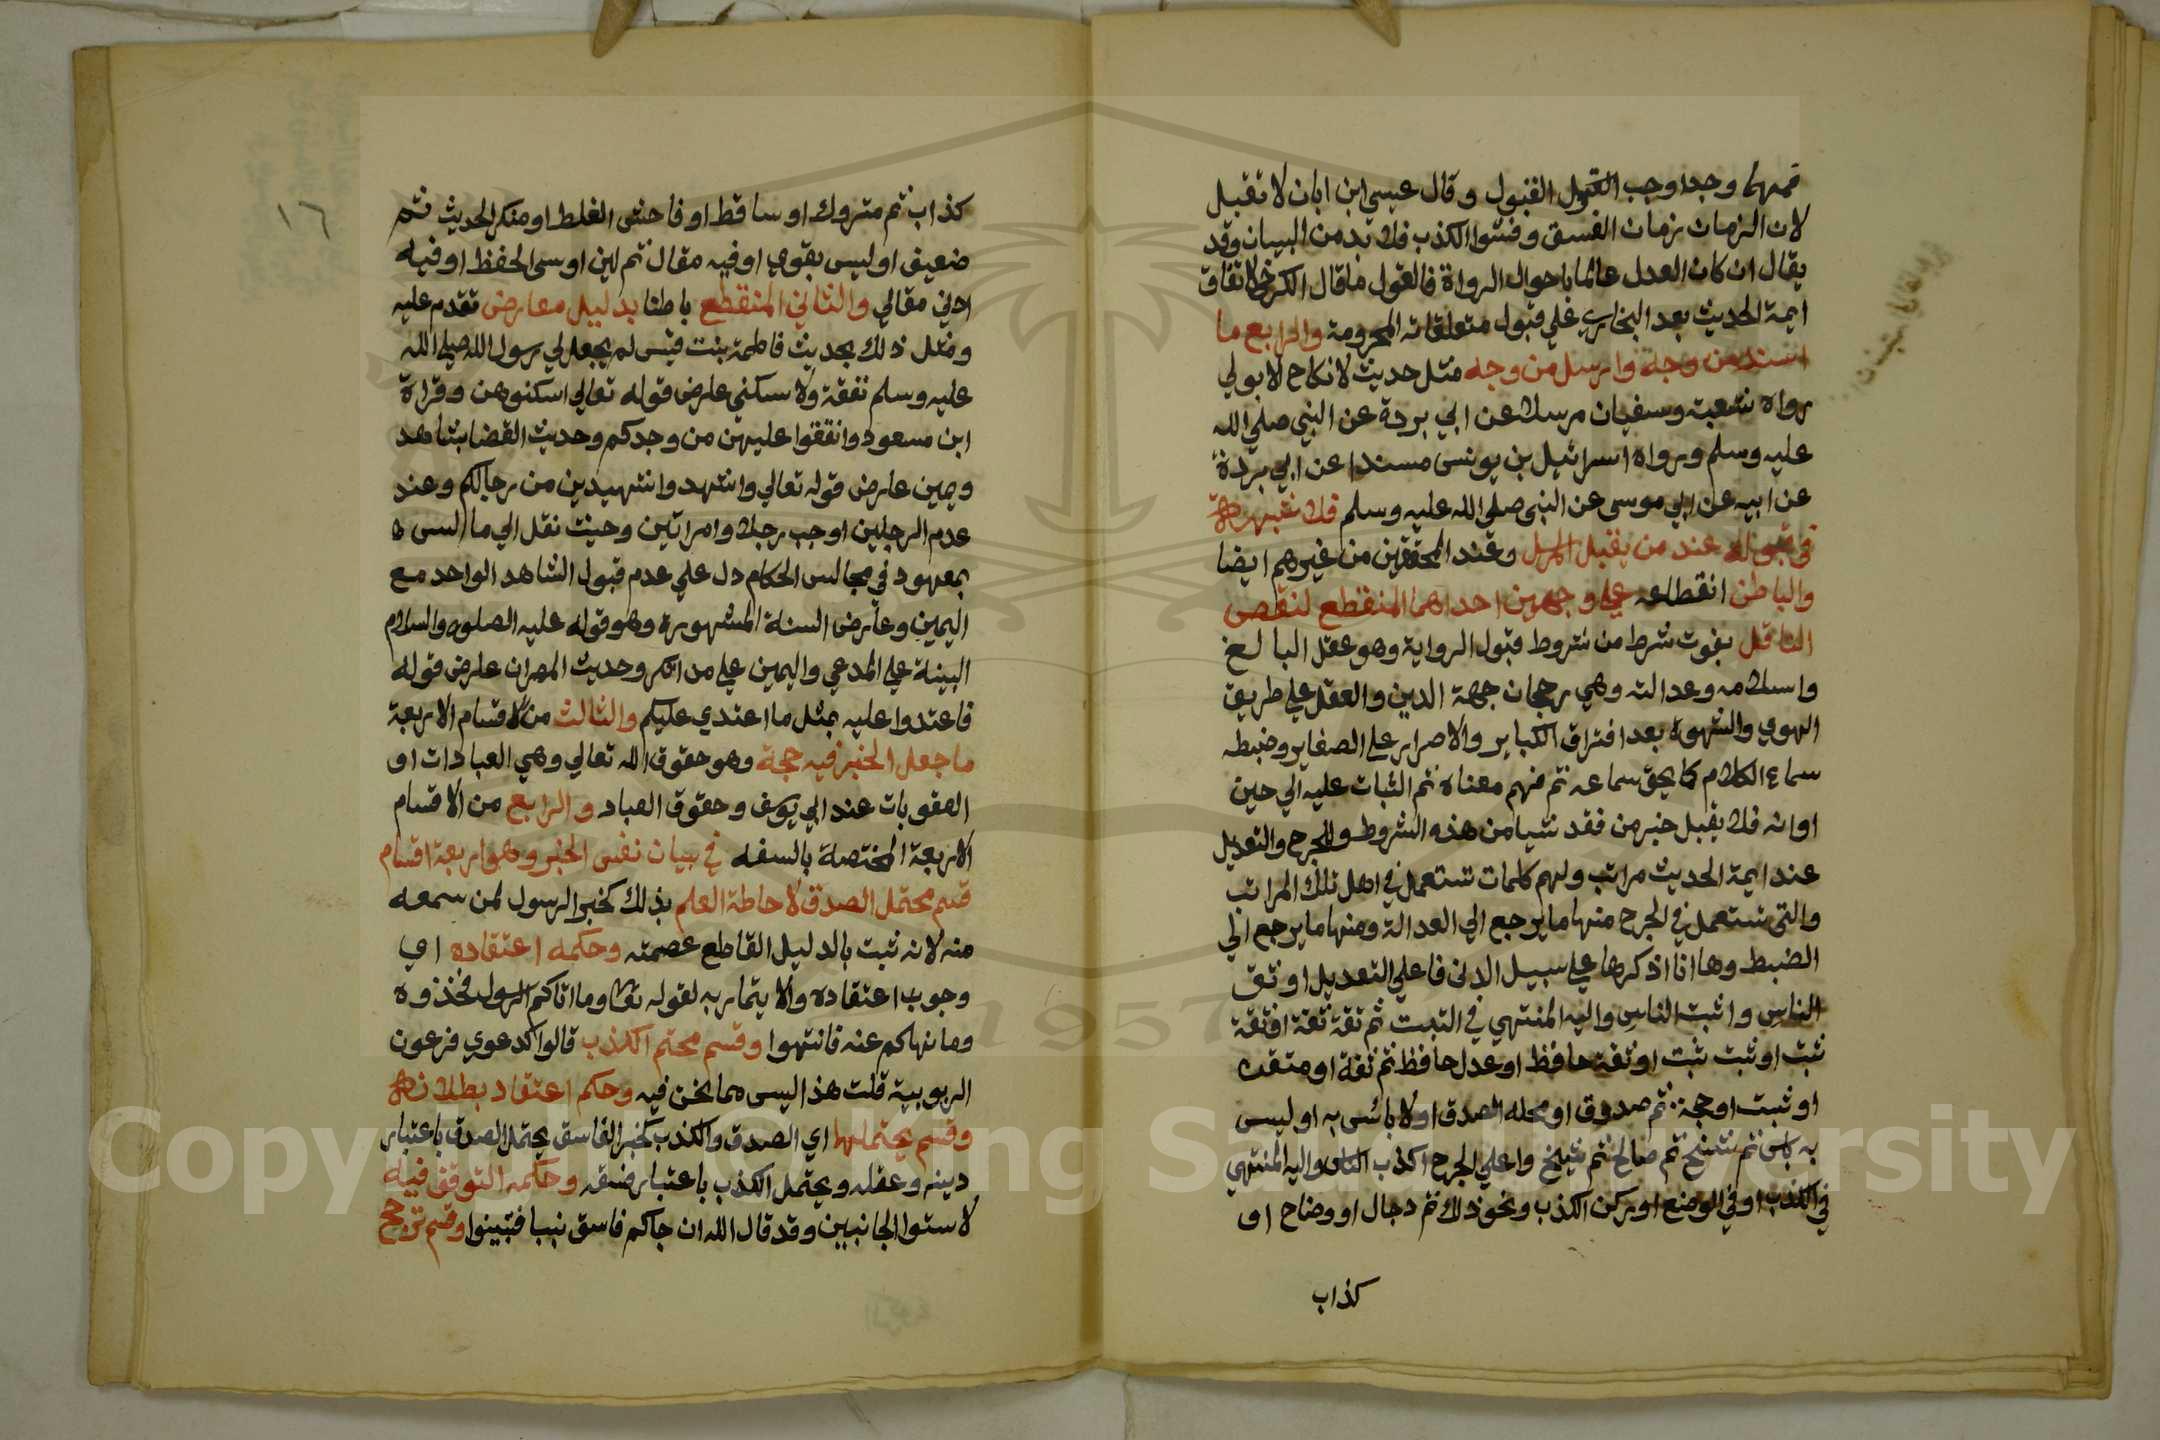 فمهما وجدا وجب القبول وقال عيسى ابن ابان لا تقبل
لان الزمان زمان الفسق وفشوا الكذب فلا بد من البيان وقد
يقال ان كان العدل عالما باحوال الرواة فالقول ما قال الكرخي لاتفاق
ايمة الحديث بعد البخاري علي قبول متعلقاته المجزومة والرابع ما
اسند من وجه وارسل من وجه مثل حديث لا نكاح الا بولي
رواه شعبة وسفيان مرسلا عن ابي بردة عن النبي صلي الله
عليه وسلم ورواه اسرائيل بن يونس مسندا عن ابي بردة
عن ابيه عن ابي موسي عن النبي صلي الله عليه وسلم فلا شبهة
في قبوله عند من يقبل المرسل وعند المحققين من غيرهم ايضا
والباطن انقطاعه علي وجهين احداهما المنقطع لنقص
الناقل بفوت شرط من شروط قبول الرواية وهو عقل البالغ
واسلامه وعدالته وهي رجحان جهة الدين والعقل علي طريق
الهوي والشهوة بعد افتراق الكباير والاصرار علي الصغاير وضبطه
سماع الكلام كما يحق سماعه ثم فهم معناه ثم الثبات عليه الي حين
اوانه فلا يقبل خبر من فقد شيا من هذه الشروط وللجرح والتعديل
عند ايمة الحديث مراتب ولهم كلمات تستعمل في اهل تلك المراتب
والتي تستعمل في الجرح منها ما يرجع الي العدالة ومنها ما يرجع الي
الضبط وها انا اذكرها علي سبيل الادنى فاعلي التعديل اوثق
الناس واثبت الناس واليه المنتهي في التثبت ثم ثقة ثقة او ثقة
ثبت او ثبت ثبت او ثقة حافظ او عدل حافظ ثم ثقة او متقن
او ثبت او حجة ثم صدوق او محله الصدق او لا بائس به او ليس
به باس ثم شيخ ثم صالح ثم شيخ واعلي الجرح اكذب الناس واليه المنتهي
في الكذب او في الوضع او ركن الكذب ونحو ذلك ثم دجال او وضاح او
كذاب
١٦
كذاب ثم متروك او ساقط او فاحش الغلط او منكر الحديث ثم
ضعيف او ليس بقوي او فيه مقال ثم لين او سي الحفظ او فيه
ادني مقالي والثاني المنقطع باطنا بدليل معارض تقدم عليه
ومثل ذلك بحديث فاطمة بنت قيس لم يجعل لي رسول الله صلي الله
عليه وسلم نفقة ولا سكني عارض قوله تعالي اسكنوهن وقراة
ابن مسعود وانفقوا عليهن من وجدكم وحديث القضا بشاهد
ويمين عارض قوله تعالي واشهد واشهيدين من رجالكم وعند
عدم الرجلين اوجب رجلا وامراتين وحيث نقل الي ما ليس ه
بمعهود في مجالس الحكام دل علي عدم قبول الشاهد الواحد مع
اليمين وعارض السنة المشهورة وهو قوله عليه الصلوة والسلام
البينة علي المدعي واليمين علي من انكر وحديث المصران عارض قوله
فاعتدوا عليه بمثل ما اعتدي عليكم والثالث من الاقسام الاربعة
ما جعل الخبر فيه حجة وهو حقوق الله تعالي وهي العبادات او
العقوبات عند ابي يوسف وحقوق العباد والرابع من الاقسام
الاربعة المختصة بالسنة في بيان نفس الخبر وهو اربعة اقسام
قسم محتمل الصدق لاحاطة العلم بذلك كخبر الرسول لمن سمعه
منه لانه ثبت بالدليل القاطع عصمته وحكمه اعتقاده اي
وجوب اعتقاده والا يتمار به لقوله تعالي وما اتاكم الرسول فخذوه
وما نهاكم عنه فانتهوا وقسم محتم الكذب قالوا كدعوي فرعون
الربوبية قلت هذا ليس مما نحن فيه وحكم اعتقاد بطلانه
وقسم يحتملهما اي الصدق والكذب كخبر الفاسق يحتمل الصدق باعتبار
دينه وعقله ويحتمل الكذب باعتبار فسقه وحكمه التوقف فيه
لاستوا الجانبين وقد قال الله ان جاكم فاسق بنبا فتبينوا وقسم ترجح
Copyright © King Saud University
1957